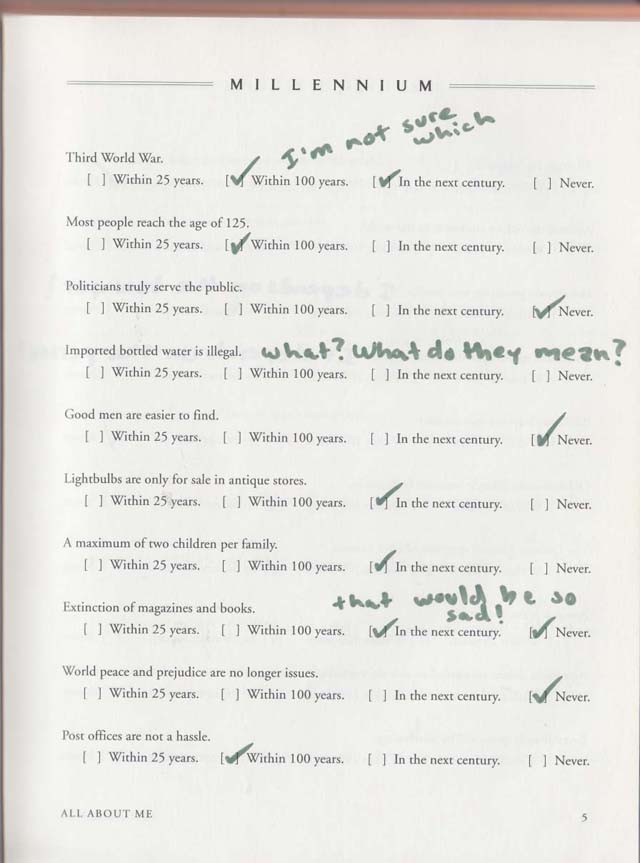 MILLENNIUM
I'm not sure
which
Third World War.
[ ] Within 25 years. [✓] Within 100 years. [✓] In the next century. [ ] Never.
Most people reach the age of 125.
[ ] Within 25 years. [✓] Within 100 years. [ ] In the next century. [ ] Never.
Politicians truly serve the public.
[ ] Within 25 years. [ ] Within 100 years. [ ] In the next century. [✓] Never.
Imported bottled water is illegal. what? What do they mean?
[ ] Within 25 years. [ ] Within 100 years. [ ] In the next century. [ ] Never.
Good men are easier to find.
[ ] Within 25 years. [ ] Within 100 years. [ ] In the next century. [✓] Never.
Lightbulbs are only for sale in antique stores.
[ ] Within 25 years. [ ] Within 100 years. [✓] In the next century. [ ] Never.
A maximum of two children per family.
[ ] Within 25 years. [ ] Within 100 years. [✓] In the next century. [ ] Never.
Extinction of magazines and books. that would be so
sad!
[ ] Within 25 years. [ ] Within 100 years. [✓] In the next century. [✓] Never.
World peace and prejudice are no longer issues.
[ ] Within 25 years. [ ] Within 100 years. [ ] In the next century. [✓] Never.
Post offices are not a hassle.
[ ] Within 25 years. [✓] Within 100 years. [ ] In the next century. [ ] Never.
ALL ABOUT ME 5